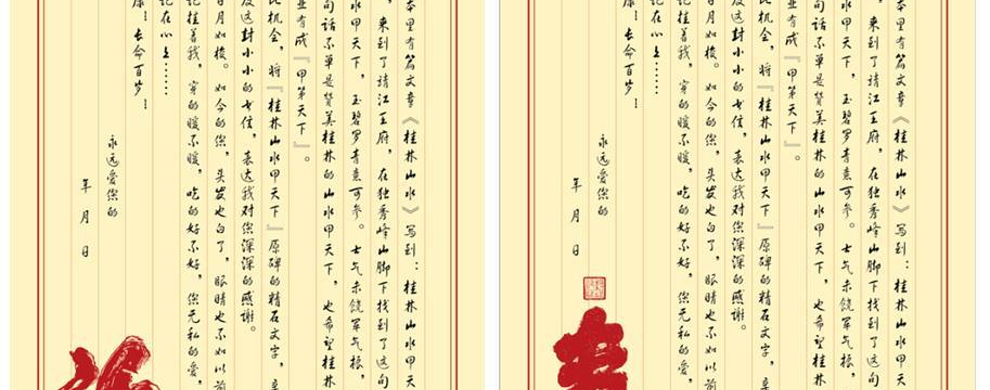 本里有篇文章《桂林山水》写到：桂林山水甲天
，来到了靖江王府，在独秀峰山脚下找到了这句
水甲天下，玉碧罗青意可参。士气未饶军气振，
句话不单是赞美桂林的山水甲天下，也希望桂林
业有成『甲第天下』。
此机会，将『桂林山水甲天下』原碑的精石文字，
及这封小小的女信，表达我对您深深的感谢。
日月如梭。如今的您，头发也白了，眼睛也不如以前
记挂着我，穿的暖不暖，吃的好不好，您无私的爱，
记在心上……
康！长命百岁！
永远爱您的
年月日
本里有篇文章《桂林山水》写到：桂林山水甲天
，来到了靖江王府，在独秀峰山脚下找到了这句
水甲天下，玉碧罗青意可参。士气未饶军气振，
句话不单是赞美桂林的山水甲天下，也希望桂林
业有成『甲第天下』。
此机会，将『桂林山水甲天下』原碑的精石文字，
及这封小小的女信，表达我对您深深的感谢。
日月如梭。如今的您，头发也白了，眼睛也不如以前
记挂着我，穿的暖不暖，吃的好不好，您无私的爱，
记在心上……
康！长命百岁！
永远爱您的
年月日